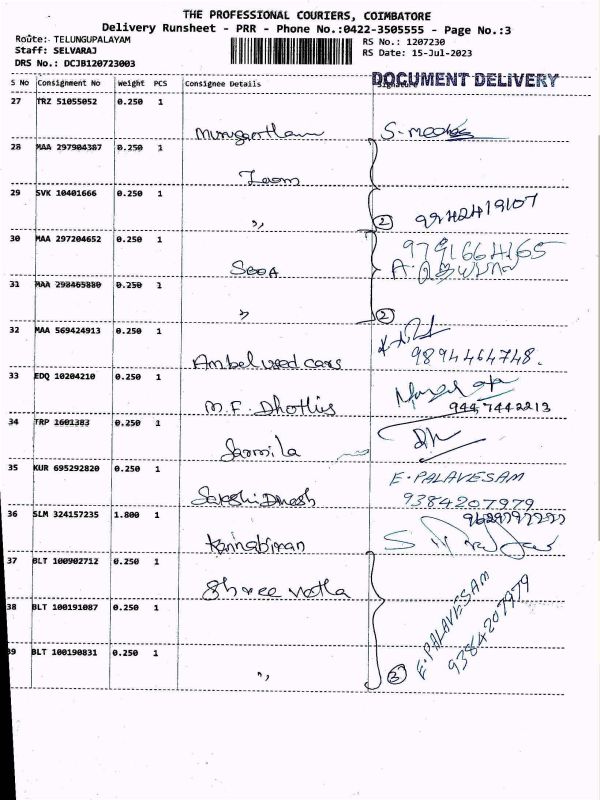 THE PROFESSIONAL COURIERS, COIMBATORE
Delivery Runsheet - PRR - Phone No.:0422-3505555 - Page No.:3
Route:- TELUNGUPALAYAM
Staff: SELVARAJ
DRS No.: DCJB120723003
RS No.: 1207230
RS Date: 15-Jul-2023
DOCUMENT DELIVERY
S No Consignment No Weight PCS Consignee Details Signature
27 TRZ 51055052 0.250 1
S-
28 MAA 297904387 0.250 1
29 SVK 10401666 0.250 1
" 2 9242419107
30 MAA 297204652 0.250 1
9791664165
A.
31 MAA 298465880 0.250 1
" 2
32 MAA 569424913 0.250 1
Ambel used cars 9894464748.
33 EDQ 10204210 0.250 1
M.F. Dhoties 9447442213
34 TRP 1601383 0.250 1
Sarmila
35 KUR 695292820 0.250 1
E. PALAVESAM
Sakshi Dinesh 9384207979
36 SLM 324157235 1.800 1
Kannabiran
37 BLT 100902712 0.250 1
Shree
38 BLT 100191087 0.250 1
39 BLT 100190831 0.250 1
" 3 E. PALAVESAM
9384207979